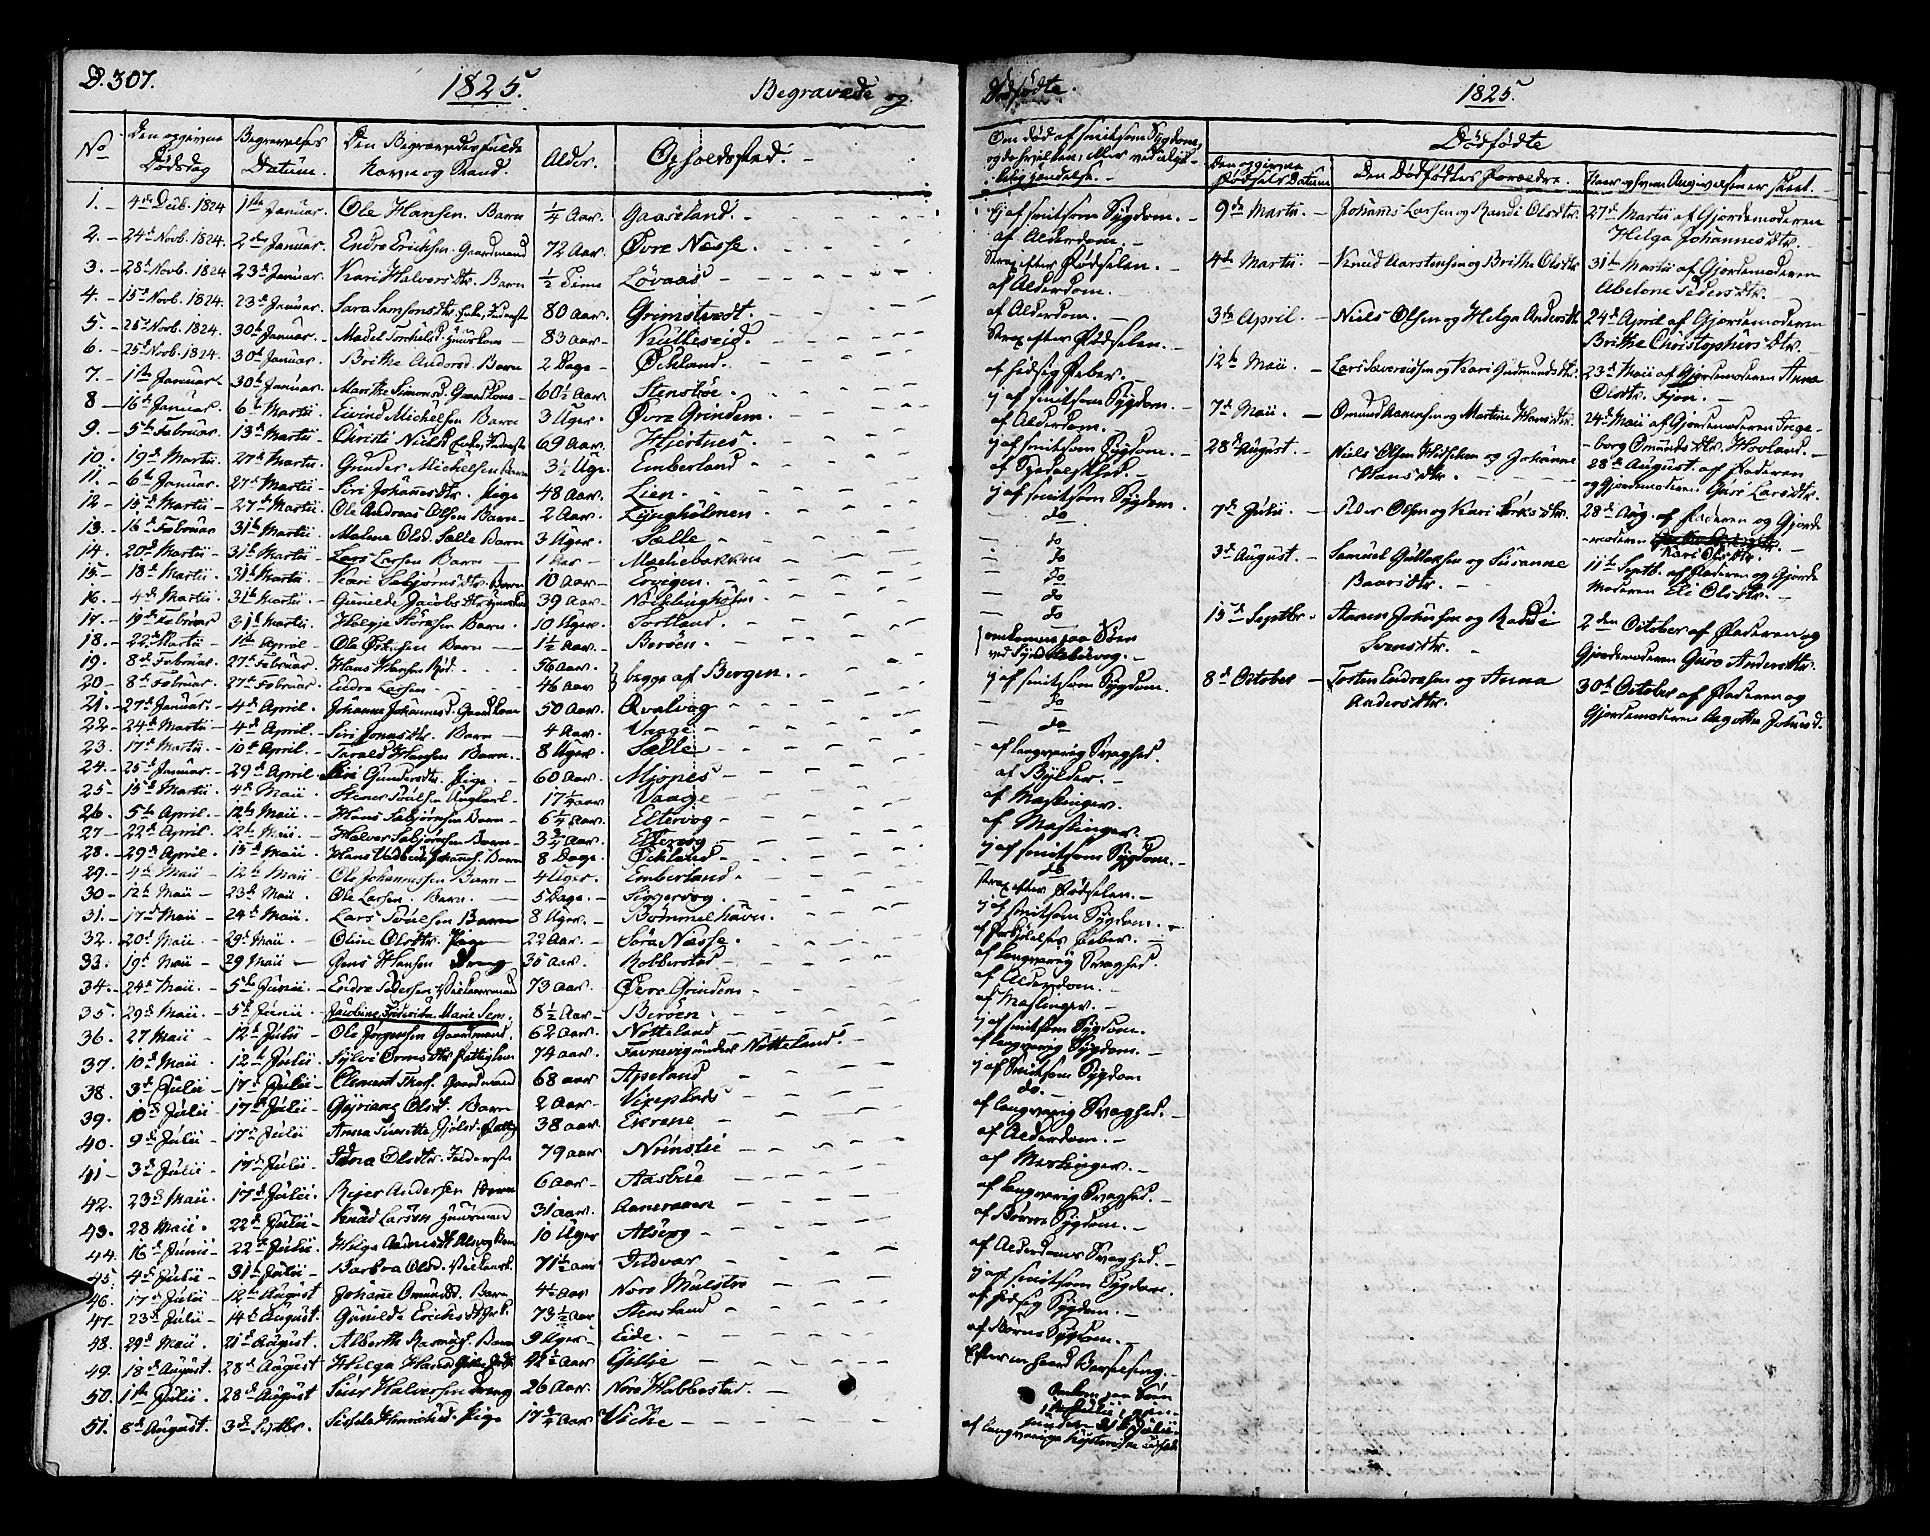 D. 307.
1825.
Begravede og
No
Den opgivne Dødsdag
Begravelses Datum.
Den Begravedes fulde Navn og Stand.
Alder.
Opholdssted.
1. 4de Decb. 1824 1ste Januar. Ole Hansen. Barn ¼ Aar. Gaaseland.
2. 24de Novb. 1824. 2den Januar. Endre Ericksen. Gaardmand 72 Aar. Øvre Nesse.
3. 28de Novb. 1824 23de Januar. Kari Halvorsdtr. Barn ½ Time Løvaas
4. 15de Novb. 1824. 23de Januar. Sara Samsonsdtr. Enke, 80 Aar. Grimstvedt.
5. 26de Novb. 1824. 30te Januar. Madel 83 Aar. Kulleseid.
6. 25de Novb. 1824. 30te Januar. Brithe Andersd. Barn 2 Dage Øckland.
7. 1ste Januar. 30te Januar. Marthe Simonsd. Gaardkone 60½ Aar. Stensbøe.
8 16de Januar. 6te Martii. Eivind Michelsen Barn 3 Uger. Øvre Grindem.
9. 5te Februar. 13de Martii. Christi Nielsd. Enke, 69 Aar. Hiertnes.
10. 19de Martii. 27de Martii. Gunder Michelsen Barn 3½ Uge. Emberland
11. 6te Januar. 27de Martii. Siri Johannesdtr. Pige 48 Aar. Lien.
12 15de Martii 27de Martii. Ole Andreas Olsen Barn 2 Aar. Lyngholmen
13. 16de Februar 31te Martii. Malene Olsd. Sælle Barn 3 Uger. Sælle
14. 20de Martii 31te Martii. Lars Larsen Barn 1 Aar. Mæhlebakken
15. 18de Martii. 31te Martii. Kari Sæbjørnsdtr. Barn 10 Aar. Ervigen.
16. 4de Martii. 31te Martii. Gunilde Jacobsdtr. 39 Aar. Nøcklingholm
17. 19de Februar 31te Martii. Helje Størksen Barn. 10 Uger. Sortland.
18. 22de Martii 1ste April. Ole Barn 1½ Aar. Berøen.
19. 8de Februar. 27de Februar. Hans Hansen Rød. 56 Aar.
20. 8de Februar. 27de Februar. Endre Larsen 46 Aar } begge af Bergen.
21. 27de Januar. 4de April. Johanna Johannesd. Gaardkone 50 Aar. Qvalvog
22. 24de Martii 4de April. Siri Jonasdtr. Barn 4 Aar. Vaage
23. 17de Martii. 10de April. Tarald Hansen Barn. 8 Uger. Sælle
24. 25de Januar. 29de April Siri Gundersdtr. Pige. 60 Aar. Mjones
25. 15de Martii. 4de Maii. Stener Ungkarl. 17¼ Aar Vaage
26. 5te April. 12te Maii. Hans Sæbjørnsen Barn 6¼ Aar. Eltervog
27 22de April. 12te Maii. Halvor Sæbjørnsen Barn 3¾ Aar. Eltervog
28. 29de April. 15de Maii. Hans Barn 8 Dage. Øckland
29. 4de Maii 12te Maii Ole Johannessen Barn 4 Uger. Emberland.
30. 12te Maii 23de Maii. Ole Larsen. Barn. 5 Dage. Siggervog.
31. 17de Maii 24de Maii. Lars Barn 8 Uger. Bommelhavn.
32. 20de Maii 29de Maii. Oline Olsdtr. Pige 22 Aar. Søra Næsse.
33. 19de Maii 29 Maii Jens Hansen Dreng 35 Aar. Robberstad
34. 24de Maii. 5te Junii. Endre Pedersen 73 Aar. Øvre Grindem
35. 29de Maii 5te Junii. Jacobine Frederike Marie Sem. 8½ Aar Berøen
36. 27 Maii 12te Julii Ole Jørgensen Gaardmand. 62 Aar. Notteland
37. 10de Maii 12te Julii Sylvi Ormsdtr. 74 Aar. under Notteland.
38. 3de Julii 17de Julii Clement Gaardmand 68 Aar Apeland
39. 10de Julii 17de Julii Gyriane Olsd. Barn 2 Aar
40. 9de Julii 17de Julii Anna 38 Aar Ekrene
41. 3de Julii 17de Julii Edna Olsdtr. 79 Aar
42. 23de Maii. 17de Julii. Reier Andersen Barn 6 Aar Aasbue
43. 28 Maii. 22de Julii Knud Larsen Huusmand 31 Aar. Aanersaen
44. 16de Junii 22de Julii Helga 10 Uger Alsvog
45. 4de Julii 31te Julii Barbra Olsd. 71½ Aar Tidvar
46. 17de Julii 12te August Johanne Omundsd. Barn 4½ Aar Nore Mulstre
47. 23de Julii. 14de August. Gunilde Ericksdtr. 73½ Aar Stensland
48. 29de Maii. 21de August. Alberth Rasmusf. Barn 9 Uger Eide.
49. 18de August. 28de August Helga 42½ Aar Gillje
50. 1ste Julii. 28de August Siur Halversen Dreng 26 Aar. Nore Habbestad.
51. 8de August. 3de Septbr. Sissela Henrichsd. Pige 17¾ Aar Vicke
Dødfødte.
1825.
Om død af smitsom Sygdom, og da hvilken, eller ved ulykkelig Hendelse.
Dødfødte
Den opgivne Fødsels Datum
Den Dødfødtes Forældre.
Naar og hvem Angivelsen er skeet.
Ej af smitsom Sygdom.
af Alderdom.
Strax efter Fødselen.
af Alderdom.
af Alderdom.
Strax efter Fødselen.
af hidsig Feber.
ej af smitsom Sygdom.
af Alderdom.
ej af smitsom Sygdom.
af Spedalskhed.
ej af smitsom Sygdom.
do
do
do
do
do
do
omkomne paa Søen
ved
ej af smitsom Sygdom.
do
do
af langvarig Svaghed.
af Bylder.
af Maslinger.
af Maslinger.
ej af smitsom Sygdom.
do
strax efter Fødselen.
ej af smitsom Sygdom.
af Forkjølelses Feber.
af langvarig Svaghed.
af Alderdom.
af Maslinger.
ej af smitsom Sygdom.
af langvarig Sygdom.
ej af smitsom Sygdom
do.
af langvarig Svaghed.
af Alderdom.
af Maslinger.
af langvarig Svaghed.
af Børne Sygdom.
af Alderdoms Svaghed.
ej af smitsom Sygdom.
af hidsig Sygdom.
af Børne Sygdom.
Efter en haard Barselseng.
Omkom paa Søen
1ste Julii,
af langvarige
9de Martii. Johannes Larsen og Randi Olsdtr. 27de Martii af Gjordemoderen
Helga Johannesdtr.
4de Martii. Knud Karstensen og Brithe Olsdtr 31te Martii af Gjordemoderen
Abelone Pedersdtr.
3die April. Niels Olsen og Helga Andersdtr 24de April af Gjordemoderen
Brithe Christophersdtr.
12te Maii Lars Sæversissen og Kari Gudmundsdtr. 23de Maii af Gjordemoderen Anna
Olsdtr. Tjøn.
7de Maii Omund Aanensen og Martine Hansdtr. 24de Maii af Gjordemoderen Inge-
borg Omundsdtr. Hovland.
28de August. Niels Olsen og Johanne
Hansdtr.
28de August. af Faderen
og Gjordemoderen Guro Larsdtr.
7de Julii Peder Olsen og Kari 28de Aug. af Faderen og Gjorde
moderen Kari Olsdtr.
3de August. Samuel Gullaksen og Susanne
Baarsdtr.
11te Septb. af Faderen og Gjorde
Moderen Ele Olsdtr.
15de Septbr. Aanen Johnsen og Randi
Svensdtr.
2den October af Faderen og
Gjordemoderen Guro Andersdtr.
8de October Tosten Endresen og Anna
Andersdtr.
30te October af Faderen og
Gjordemoderen Aagothe Johnsd.